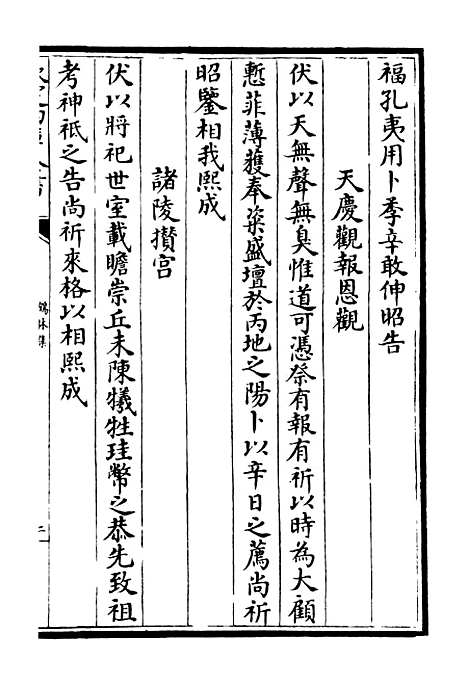 福孔夷用卜季辛敢伸昭告
天慶觀報恩觀
伏以天無聲無臭惟道可憑祭有報有祈以時為大顧
慙菲薄獲奉粢盛壇於丙地之陽卜以辛日之薦尚祈
昭鑒相我熙成
諸陵攅宫
伏以將祀世室載瞻崇丘未陳犧牲珪幣之恭先致祖
考神祇之告尚祈來格以相熙成
鶴林集